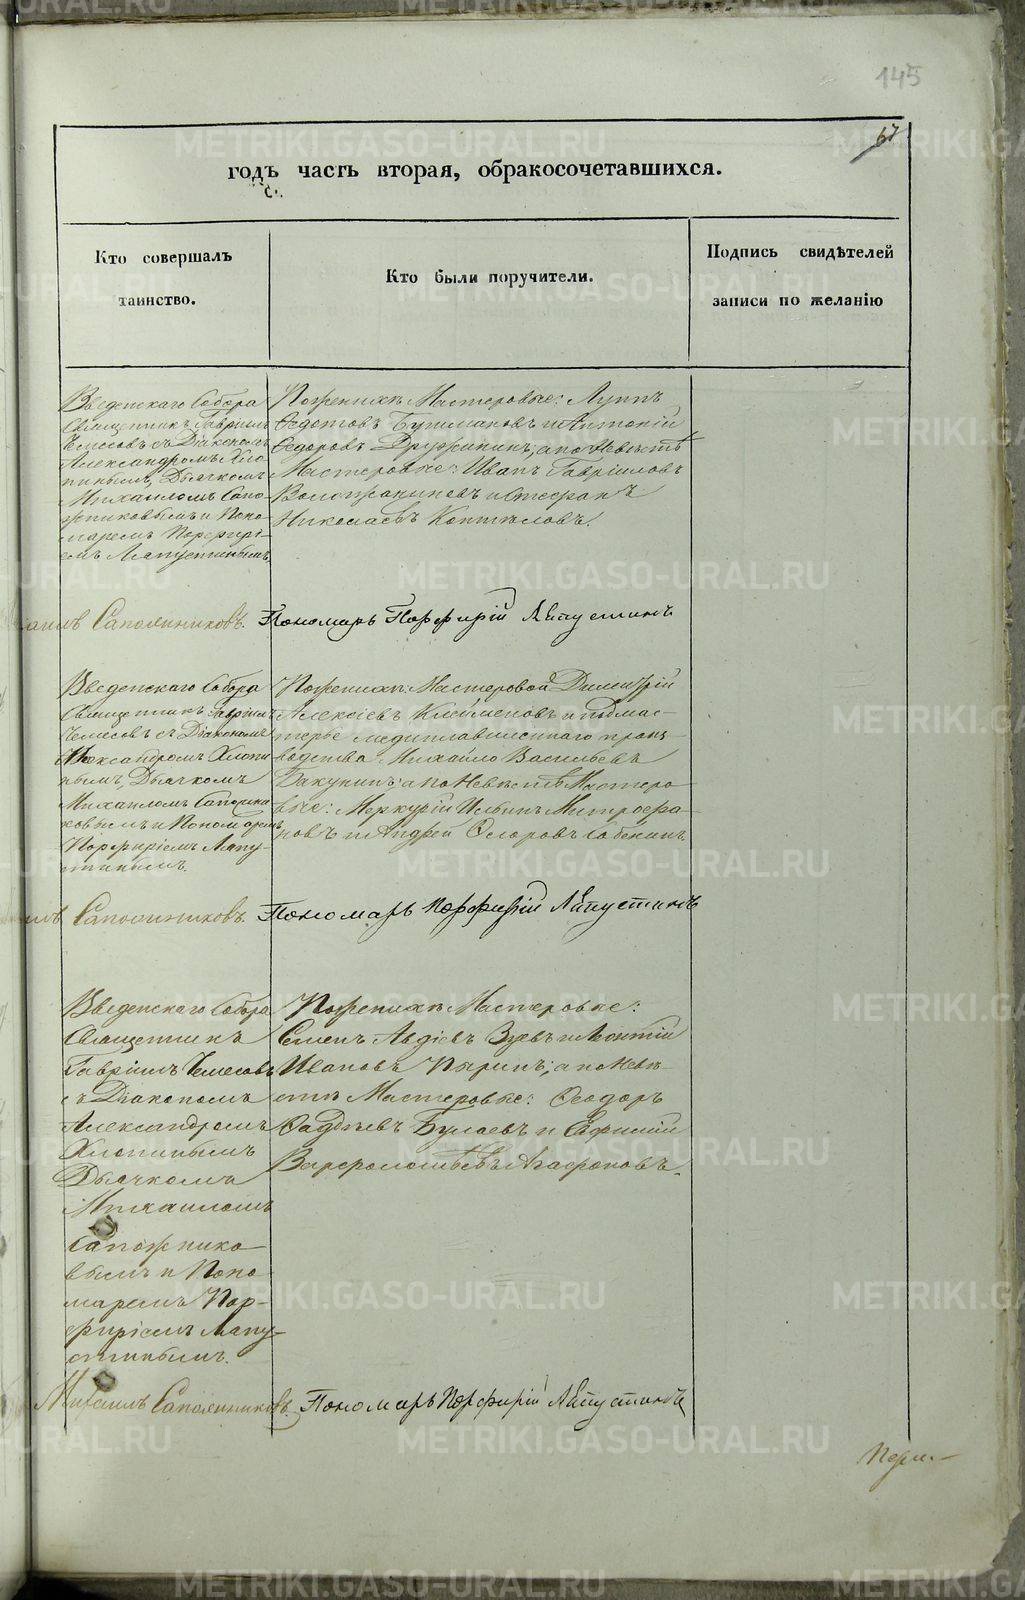 145
67
годъ часть вторая, обракосочетавшихся.
Кто совершалъ
таинство.
Кто были поручители.
Подпись свидѣтелей
записи по желанію
Введенскаго Собора
Священникъ Гавріилъ
Чемесовъ съ Діакономъ
Александромъ Хло
пинымъ, Дьячкомъ
Михаиломъ Сапо
жниковымъ и Поно
маремъ Порфирі
емъ Лапустинымъ.
По женихѣ: Мастеровые: Луппъ
Ѳедотовъ и Антоній
Ѳедоровъ Дружининъ; а по Невѣстѣ
Мастеровые: Иванъ Гавріиловъ
и Стефанъ
Николаевъ Коптѣловъ.
Сапожниковъ. Пономарь Порфирій Лапустинъ
Введенскаго Собора
Священникъ Гавріилъ
Чемесовъ съ Діакономъ
Александромъ Хлопи
нымъ, Дьячкомъ
Михаиломъ Сапожни
ковымъ и Пономаремъ
Порфиріемъ Лапу
стинымъ.
По женихѣ: Мастеровой Димитрій
Алексіевъ Клейменовъ и подмас
терье медиплавиленнаго произ
водства Михайло Васильевъ
Бакунинъ; а по Невѣстѣ Мастеро
вые: Меркурій Ильинъ Митрофа
новъ и Андрей Ѳедоровъ Собенинъ.
Сапожниковъ. Пономарь Порфирій Лапустинъ
Введенскаго Собора
Священникъ
Гавріилъ Чемесовъ
съ Діакономъ
Александромъ
Хлопинымъ
Дьячкомъ
Михаиломъ
Сапожнико
вымъ и Поно
маремъ Пор-
фиріемъ Лапу
стинымъ.
По женихѣ: Мастеровые:
Семенъ Авдіевъ Зуевъ и Леонтій
Ивановъ; а по Невѣ
стѣ Мастеровые: Ѳеодоръ
Ѳаддѣевъ Булаевъ и Ефимій
Варфоломѣевъ Агафоновъ.
Михаилъ Сапожниковъ. Пономарь Порфирій Лапустинъ
METRIKI.GASO-URAL.RU